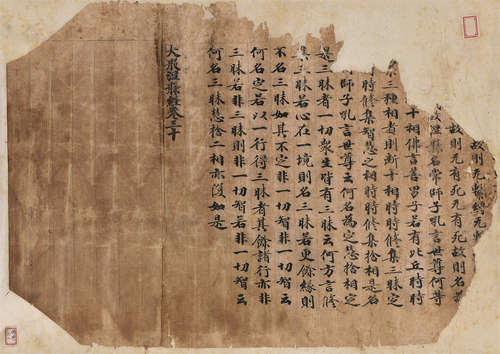 故則无繫縛无
故則无有死无有死故則名
涅槃名常師子吼言世尊何等
十相佛言善男子若有比丘時時
三種相者則斷十相時時修集三昧定
時時修集智慧之相時時修集捨相是名
師子吼言世尊云何名為定慧捨相定
是三昧者一切眾生皆有三昧云何方言修
集三昧若心在一境則名三昧若更餘緣則
不名三昧如其不定非一切智非一切智云
何名定若以一行得三昧者其餘諸行亦非
三昧若非三昧則非一切智若非一切智云
何名三昧慧捨二相亦復如是
大般涅槃經卷三十